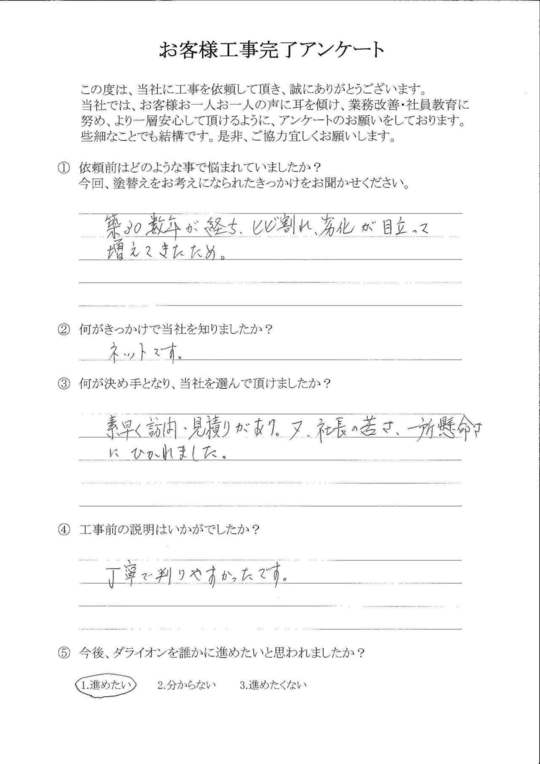 お客様工事完了アンケート
この度は、当社に工事を依頼して頂き、誠にありがとうございます。
当社では、お客様お一人お一人の声に耳を傾け、業務改善・社員教育に
努め、より一層安心して頂けるように、アンケートのお願いをしております。
些細なことでも結構です。是非、ご協力宜しくお願いします。
① 依頼前はどのような事で悩まれていましたか？
今回、塗替えをお考えになられたきっかけをお聞かせください。
築30数年が経ち、ヒビ割れ、劣化が目立って
増えてきたため。
② 何がきっかけで当社を知りましたか？
ネットです。
③ 何が決め手となり、当社を選んで頂けましたか？
素早く訪問・見積りがあり。又、社長の若さ、一所懸命さ
にひかれました。
④ 工事前の説明はいかがでしたか？
丁寧で判りやすかったです。
⑤ 今後、ダライオンを誰かに進めたいと思われましたか？
1.進めたい 2.分からない 3.進めたくない